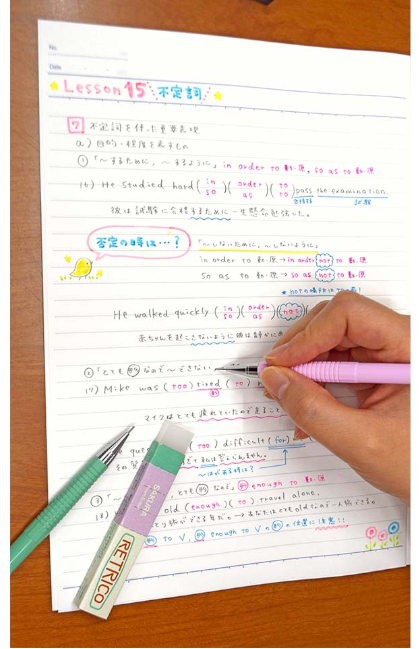 No.
Date
Lesson 15 不定詞
7 不定詞を使った重要表現
a) 目的・程度を表すもの
① 「〜するために，〜するように」 in order to 動・原，so as to 動・原
16) He studied hard (in so)(order as)(to to) pass the examination.
合格する 試験
彼は試験に合格するために一生懸命勉強した。
否定の時は…？
「〜しないために，〜しないように」
in order to 動・原 → in order not to 動・原
so as to 動・原 → so as not to 動・原
notの
He walked quickly (in so)(order as)(not)
赤ちゃんを起こさないように彼は静かに
② 「とても 形 なので〜できない
17) Mike was (too) tired (to)
形
マイクはとても疲れていたので
ques (too) difficult (for)
〜はが来る時は？
③ とても 形 なので， 形 enough to 動・原
18) old (enough)(to) travel alone.
to V， 形 enough to V の 形 の位置に注意!!
SAKURA
RETRICO